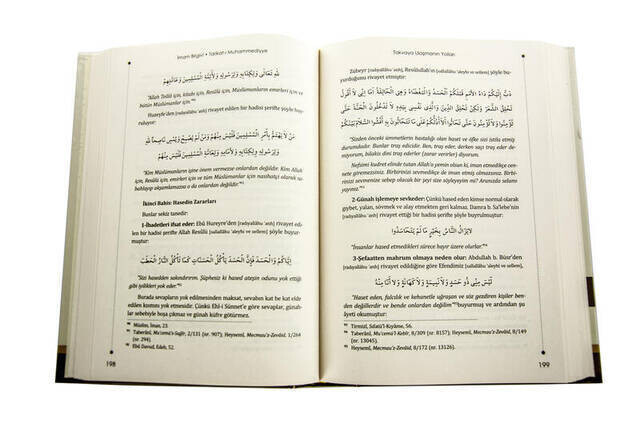 İmam Birgivî • Tarikat-ı Muhammediyye
لِلّٰهِ تَعَالٰى وَلِكِتَابِهِ وَلِرَسُولِهِ وَلِأَئِمَّةِ الْمُسْلِمِينَ وَعَامَّتِهِمْ
"Allah Teâlâ için, kitabı için, Resûlü için, Müslümanların emirleri için ve
bütün Müslümanlar için."
Huzeyfe'den [radıyallâhu 'anh] rivayet edilen bir hadisi şerifte şöyle buyru-
luyor:
مَنْ لَا يَهْتَمُّ بِأَمْرِ الْمُسْلِمِينَ فَلَيْسَ مِنْهُمْ وَمَنْ لَمْ يُصْبِحْ وَيُمْسِ نَاصِحًا لِلّٰهِ
وَلِرَسُولِهِ وَلِكِتَابِهِ وَلِإِمَامِهِ وَلِعَامَّةِ الْمُسْلِمِينَ فَلَيْسَ مِنْهُمْ
"Kim Müslümanların işine önem vermezse onlardan değildir. Kim Allah
için, Resûlü için, emirleri için ve tüm Müslümanlar için nasihatçi olarak sa-
bahlayıp akşamlamazsa o da onlardan değildir."
İkinci Bahis: Hasedin Zararları
Bunlar sekiz tanedir:
1-İbadetleri ifsat eder: Ebû Hureyre'den [radıyallâhu 'anh] rivayet edi-
len bir hadisi şerifte Allah Resûlü [sallallâhu 'aleyhi ve sellem] şöyle buyur-
muştur:
إِيَّاكُمْ وَالْحَسَدَ فَإِنَّ الْحَسَدَ يَأْكُلُ الْحَسَنَاتِ كَمَا تَأْكُلُ النَّارُ الْحَطَبَ
"Sizi hasedden sakındırım. Şüphesiz ki hased ateşin odunu yok ettiği
gibi iyilikleri yok eder."
Burada sevapların yok edilmesinden maksat, sevabın kat be kat elde
edilen kısmını yok etmesidir. Çünkü Ehl-i Sünnet'e göre sevaplar, günah-
lar sebebiyle boşa çıkmaz ve günah küfre götürmez.
Müslim, İman, 23.
Taberânî, Mu'cemü's-Sağîr, 2/131 (nr. 907); Heysemî, Mecmau'z-Zevâid, 1/264
(nr. 294).
Ebû Davud, Edeb, 52.
198
Takvaya Ulaşmanın Yolları
Zübeyr [radıyallâhu 'anh], Resûlullah'ın [sallallâhu 'aleyhi ve sellem] şöyle bu-
yurduğunu rivayet etmiştir:
دَبَّ إِلَيْكُمْ دَاءُ الْأُمَمِ قَبْلَكُمْ الْحَسَدُ وَالْبَغْضَاءُ وَهِيَ الْحَالِقَةُ أَمَا إِنِّي لَا أَقُولُ
تَحْلِقُ الشَّعَرَ وَلٰكِنْ تَحْلِقُ الدِّينَ وَالَّذِي نَفْسِي بِيَدِهِ لَا تَدْخُلُونَ الْجَنَّةَ حَتَّى
"Sizden önceki ümmetlerin hastalığı olan haset ve öfke sizi istila etmiş
durumdadır. Bunlar tıraş edicidir. Ben, tıraş eder, derken saçı tıraş eder de-
miyorum, bilakis dini tıraş ederler (zarar verirler) diyorum.
Nefsimi kudret elinde tutan Allah'a yemin olsun ki, iman etmedikçe cen-
nete giremezsiniz. Birbirinizi sevmedikçe de iman etmiş olmazsınız. Birbi-
rinizi sevmenize sebep olacak bir şeyi size söyleyeyim mi? Aranızda selamı
yayınız."
2-Günah işlemeye sevkeder: Çünkü hased eden kimse normal olarak
gıybet, yalan, sövmek ve alay etmekten geri kalmaz. Damra b. Sa'lebe'nin
[radıyallâhu 'anh] rivayet ettiği bir hadisi şerifte şöyle buyrulmuştur:
لَا يَزَالُ النَّاسُ بِخَيْرٍ مَا لَمْ يَتَحَاسَدُوا
"İnsanlar hased etmedikleri sürece hayır üzere olurlar."
3-Şefaatten mahrum olmaya neden olur: Abdullah b. Büsr'den
[radıyallâhu 'anh] rivayet edildiğine göre Efendimiz [sallallâhu 'aleyhi ve sellem]
لَيْسَ مِنِّي ذُو حَسَدٍ وَلَا نَمِيمَةٍ وَلَا كَهَانَةٍ وَلَا أَنَا مِنْهُ
"Haset eden, falcılık ve kehanetle uğraşan ve söz gezdiren kişiler ben-
den değillerdir ve bende onlardan değilim" buyurmuş ve ardından şu
âyeti okumuştur:
Tirmizî, Sıfatü'l-Kıyâme, 56.
Taberânî, Mu'cemü'l-Kebîr, 8/309 (nr. 8157); Heysemî, Mecmau'z-Zevâid, 8/149
(nr. 13045).
Heysemî, Mecmau'z-Zevâid, 8/172 (nr. 13126).
199